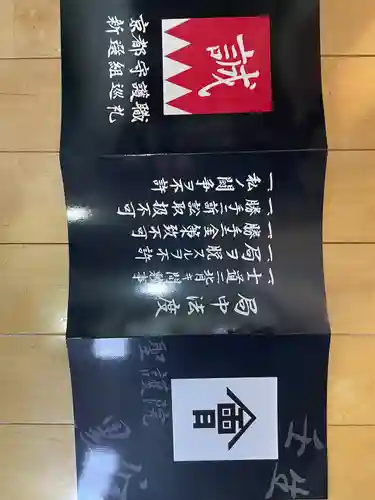 京都守護職
新選組巡礼
誠
局中法度
一、士道ニ背キ間敷事
一、局ヲ脱スルヲ不許
一、勝手ニ金策致不可
一、勝手ニ訴訟取扱不可
一、私ノ闘争ヲ不許
壬生
會
聖護院
黒谷